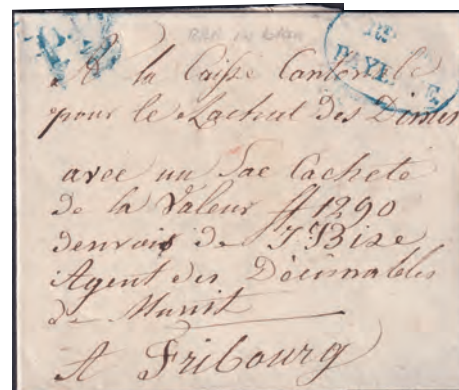 Rt
PAYE E.
A la Caisse Cantonale
pour le Rachat des Dimes
avec un Sac Cacheté
de la Valeur ff 1290
d'envoi de J Bise
Agent des Décimables
de Murist
A Fribourg